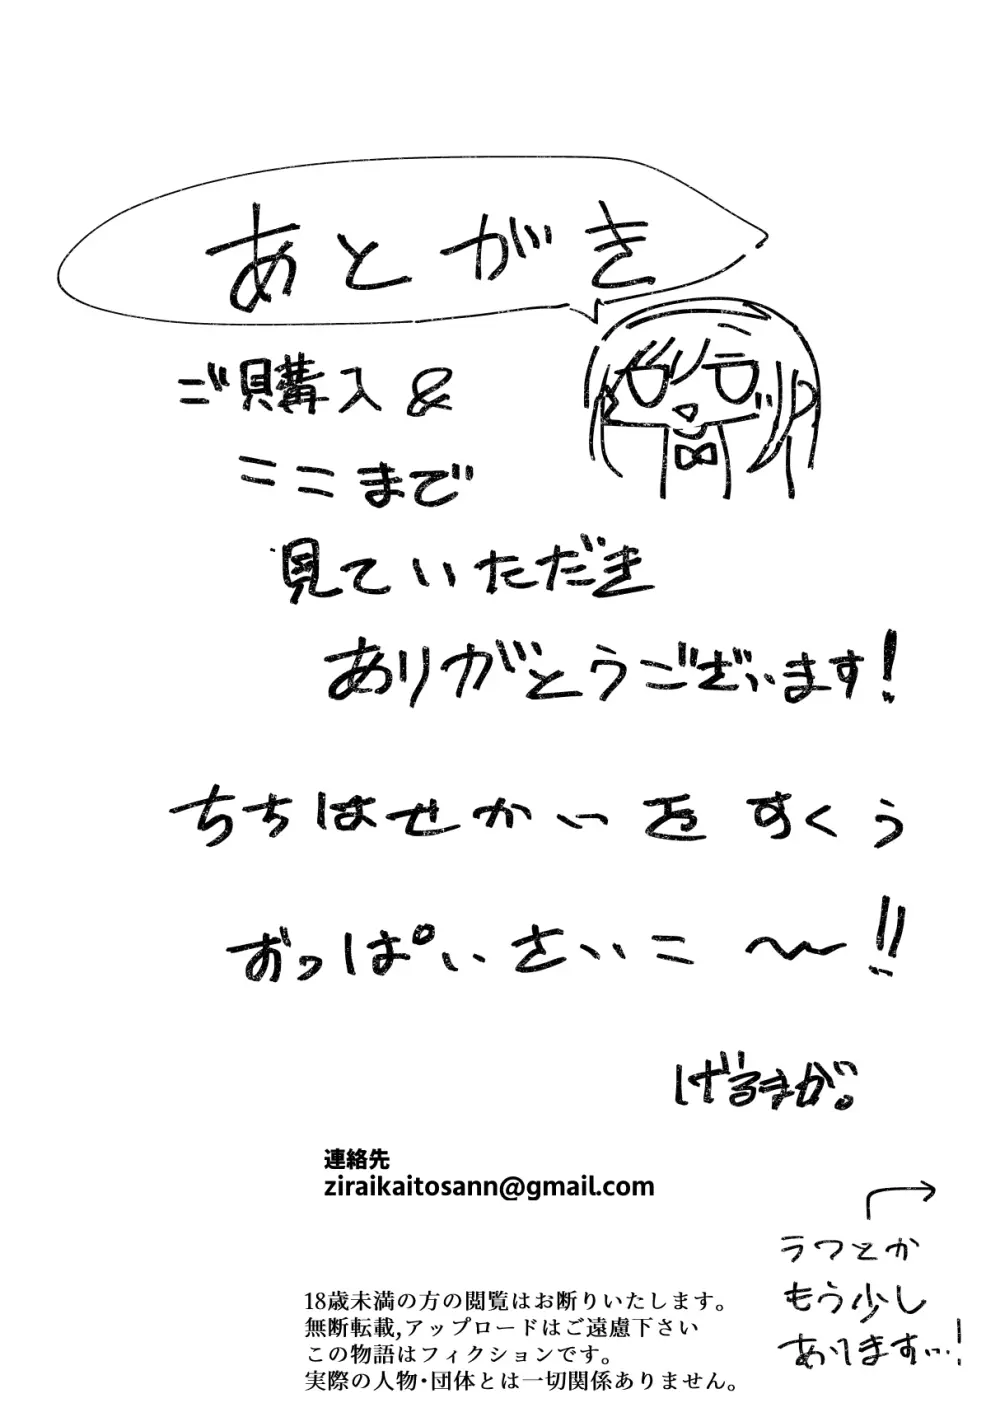 あとがき
ご購入&
ここまで
見ていただき
ありがとうございます!
ちちはせかいをすくう
おっぱいさいこ〜!!
げるまが。
連絡先
ziraikaitosann@gmail.com
ラフとか
もう少し
あります…!
18歳未満の方の閲覧はお断りいたします。
無断転載,アップロードはご遠慮下さい
この物語はフィクションです。
実際の人物・団体とは一切関係ありません。